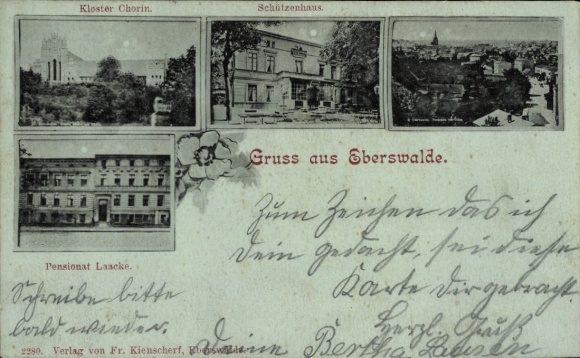 Kloster Chorin.
Schützenhaus.
Gruss aus Eberswalde.
Pensionat Laacke.
Zum Zeichen das ich
Dein gedacht, sei diese
Karte Dir gebracht.
Herzl. Gruß
Deine Bertha
Schreibe bitte
bald wieder.
2280. Verlag von Fr. Kienscherf, Eberswalde.